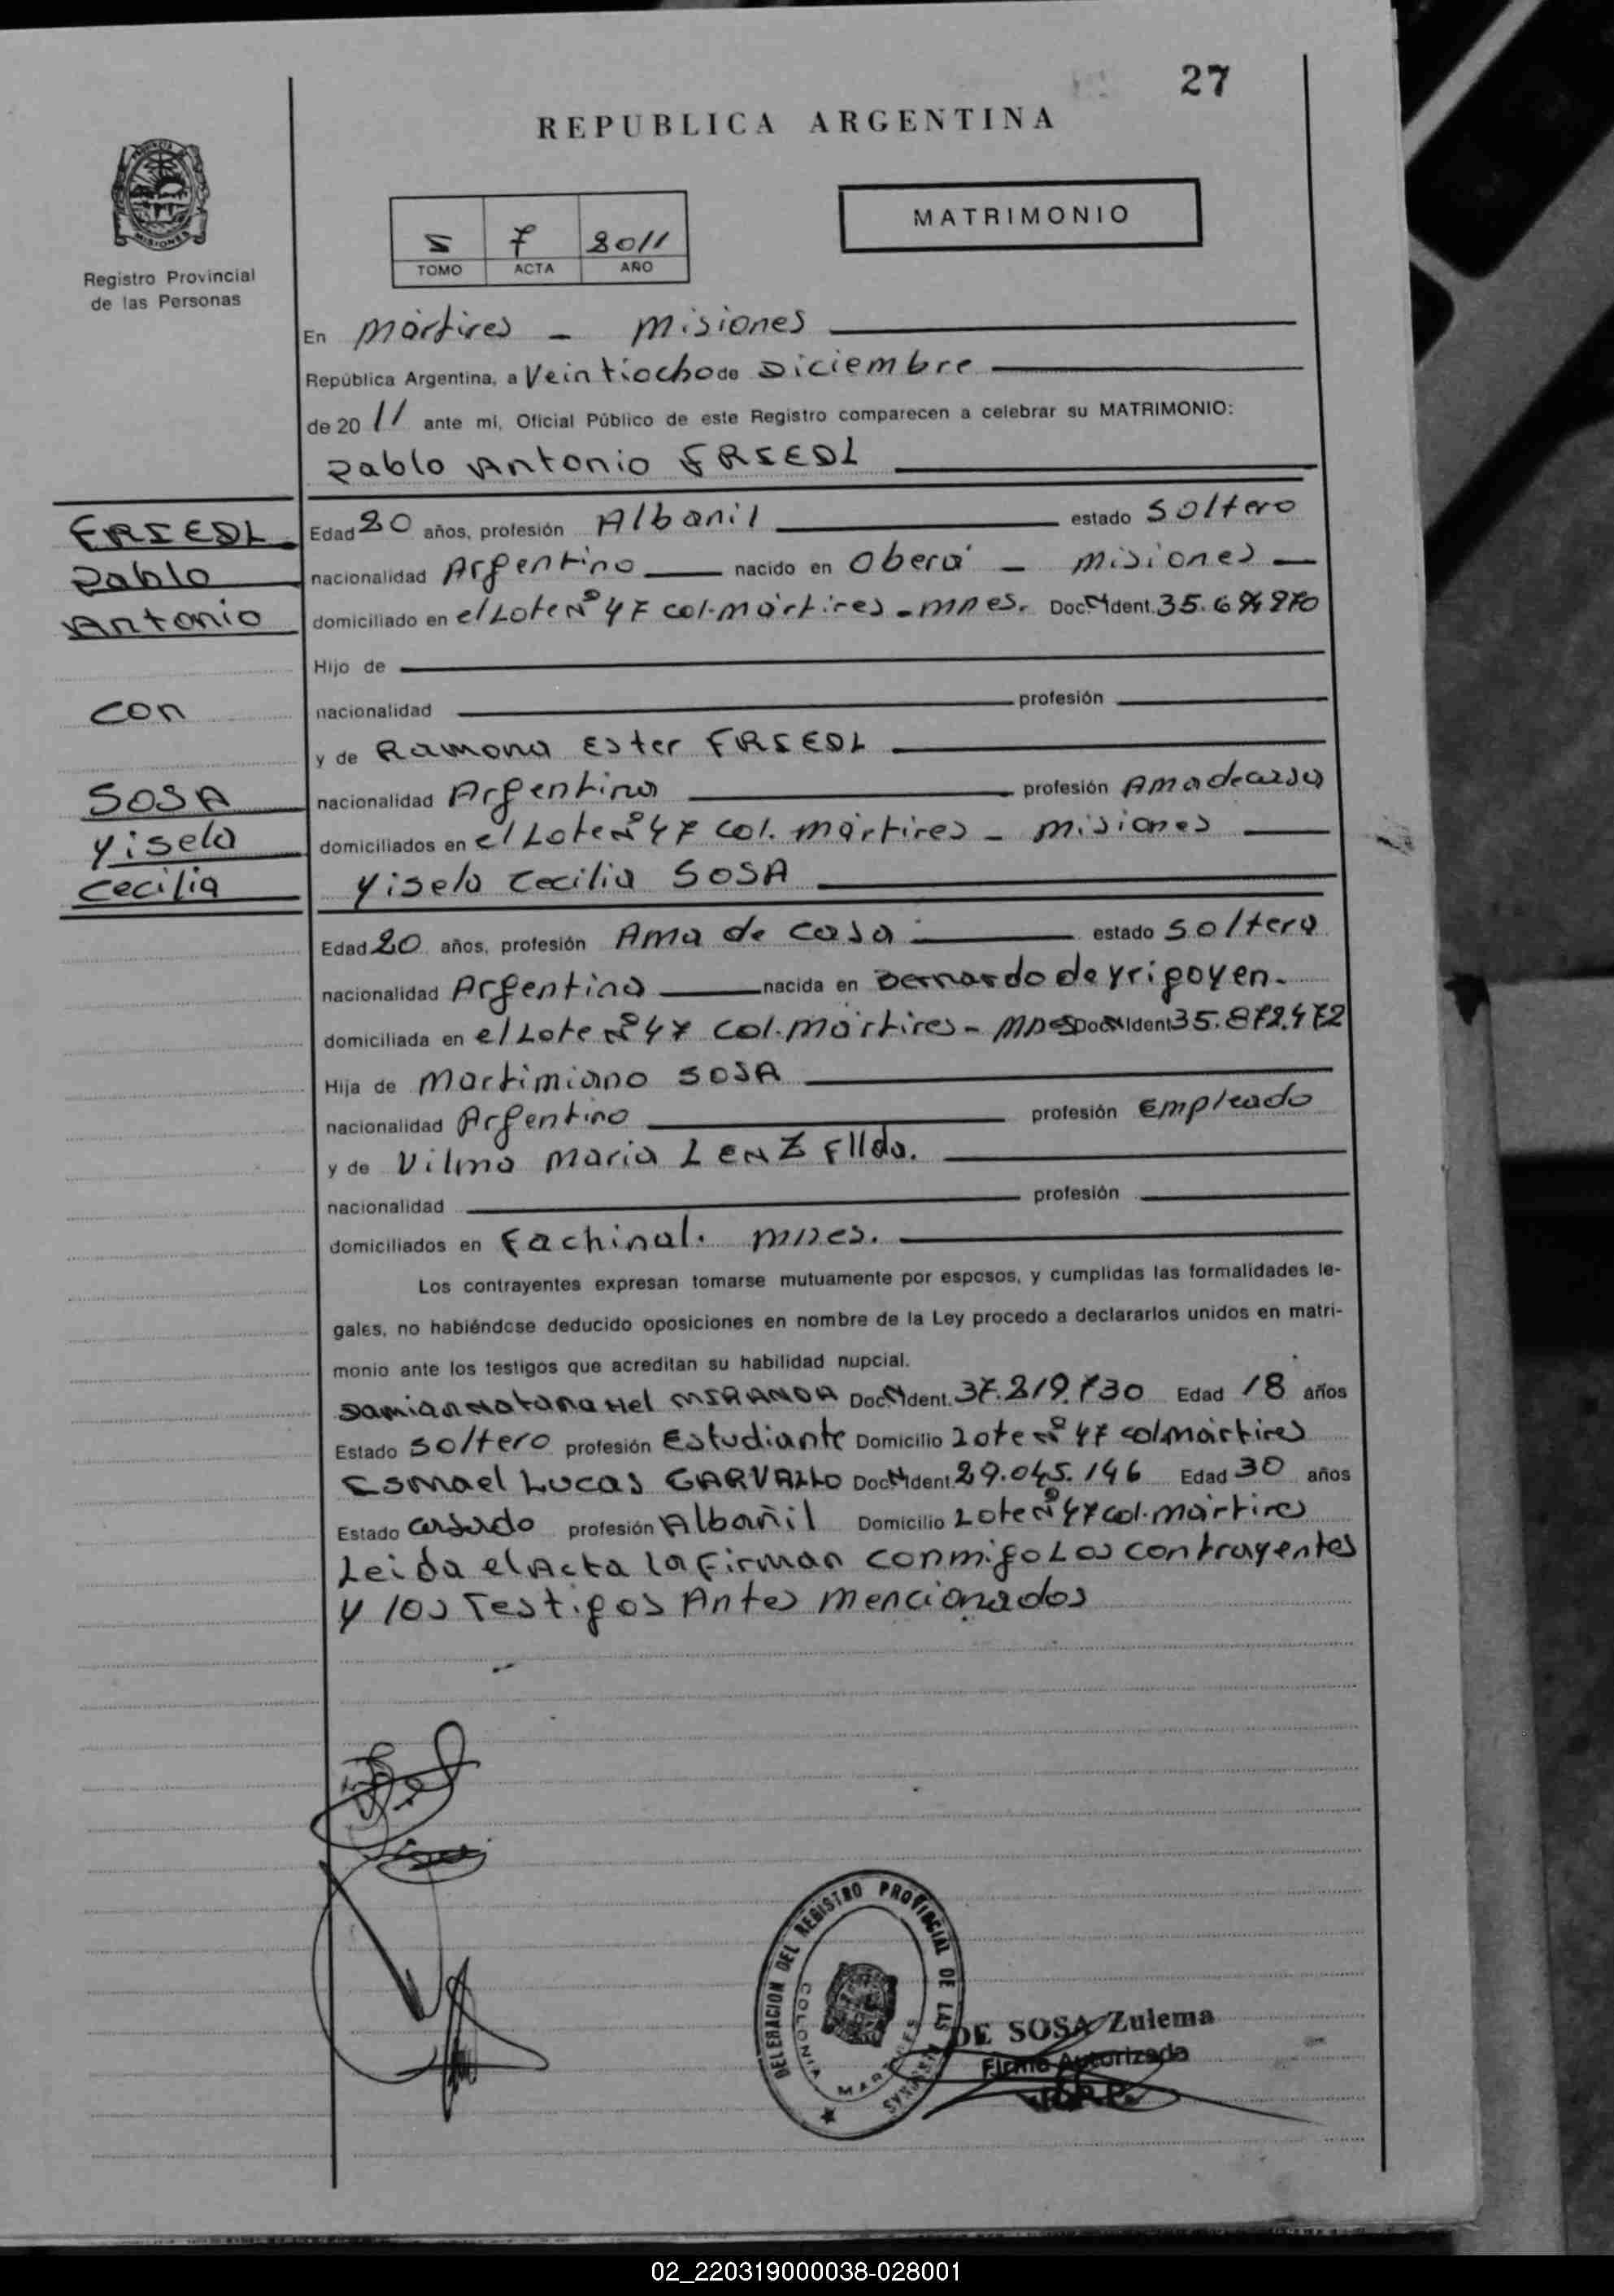 27
REPUBLICA ARGENTINA
MISIONES
Registro Provincial
de las Personas
5 7 2011
TOMO ACTA AÑO
MATRIMONIO
En Mártires - Misiones
República Argentina, a Veintiocho de Diciembre
de 2011 ante mi, Oficial Público de este Registro comparecen a celebrar su MATRIMONIO:
Pablo Antonio FRIEDL
FRIEDL
Pablo
Antonio
con
SOSA
Yisela
Cecilia
Edad 20 años, profesión Albanil estado Soltero
nacionalidad Argentino nacido en Oberá - Misiones
domiciliado en el Lote Nº 47 col. Mártires - Mnes. Doc. N Ident.
Hijo de
nacionalidad profesión
y de Ramona Ester FRIEDL
nacionalidad Argentina profesión Ama de casa
domiciliados en el Lote Nº 47 Col. Mártires - Misiones
Yisela Cecilia SOSA
Edad 20 años, profesión Ama de casa estado Soltera
nacionalidad Argentina nacida en Bernardo de Yrigoyen.
domiciliada en el Lote Nº 47 Col. Mártires - Mnes Doc. N Ident 35.872.472
Hija de Martimiano SOSA
nacionalidad Argentino profesión Empleado
y de Vilma Maria LENZ Fllda.
nacionalidad profesión
domiciliados en Fachinal. Mnes.
Los contrayentes expresan tomarse mutuamente por esposos, y cumplidas las formalidades le-
gales, no habiéndose deducido oposiciones en nombre de la Ley procedo a declararlos unidos en matri-
monio ante los testigos que acreditan su habilidad nupcial.
Damian Natanahel MIRANDA Doc. N Ident. 37.219.730 Edad 18 años
Estado Soltero profesión Estudiante Domicilio Lote Nº 47 col Mártires
Ismael Lucas CARVALLO Doc. N Ident. 29.045.146 Edad 30 años
Estado casado profesión Albañil Domicilio Lote Nº 47 col. Mártires
Leida el Acta la Firman conmigo Los contrayentes
y los Testigos Antes mencionados
DELEGACION DEL REGISTRO PROVINCIAL DE LAS PERSONAS
COLONIA MARTIRES
DE SOSA Zulema
Firma Autorizada
02_220319000038-028001